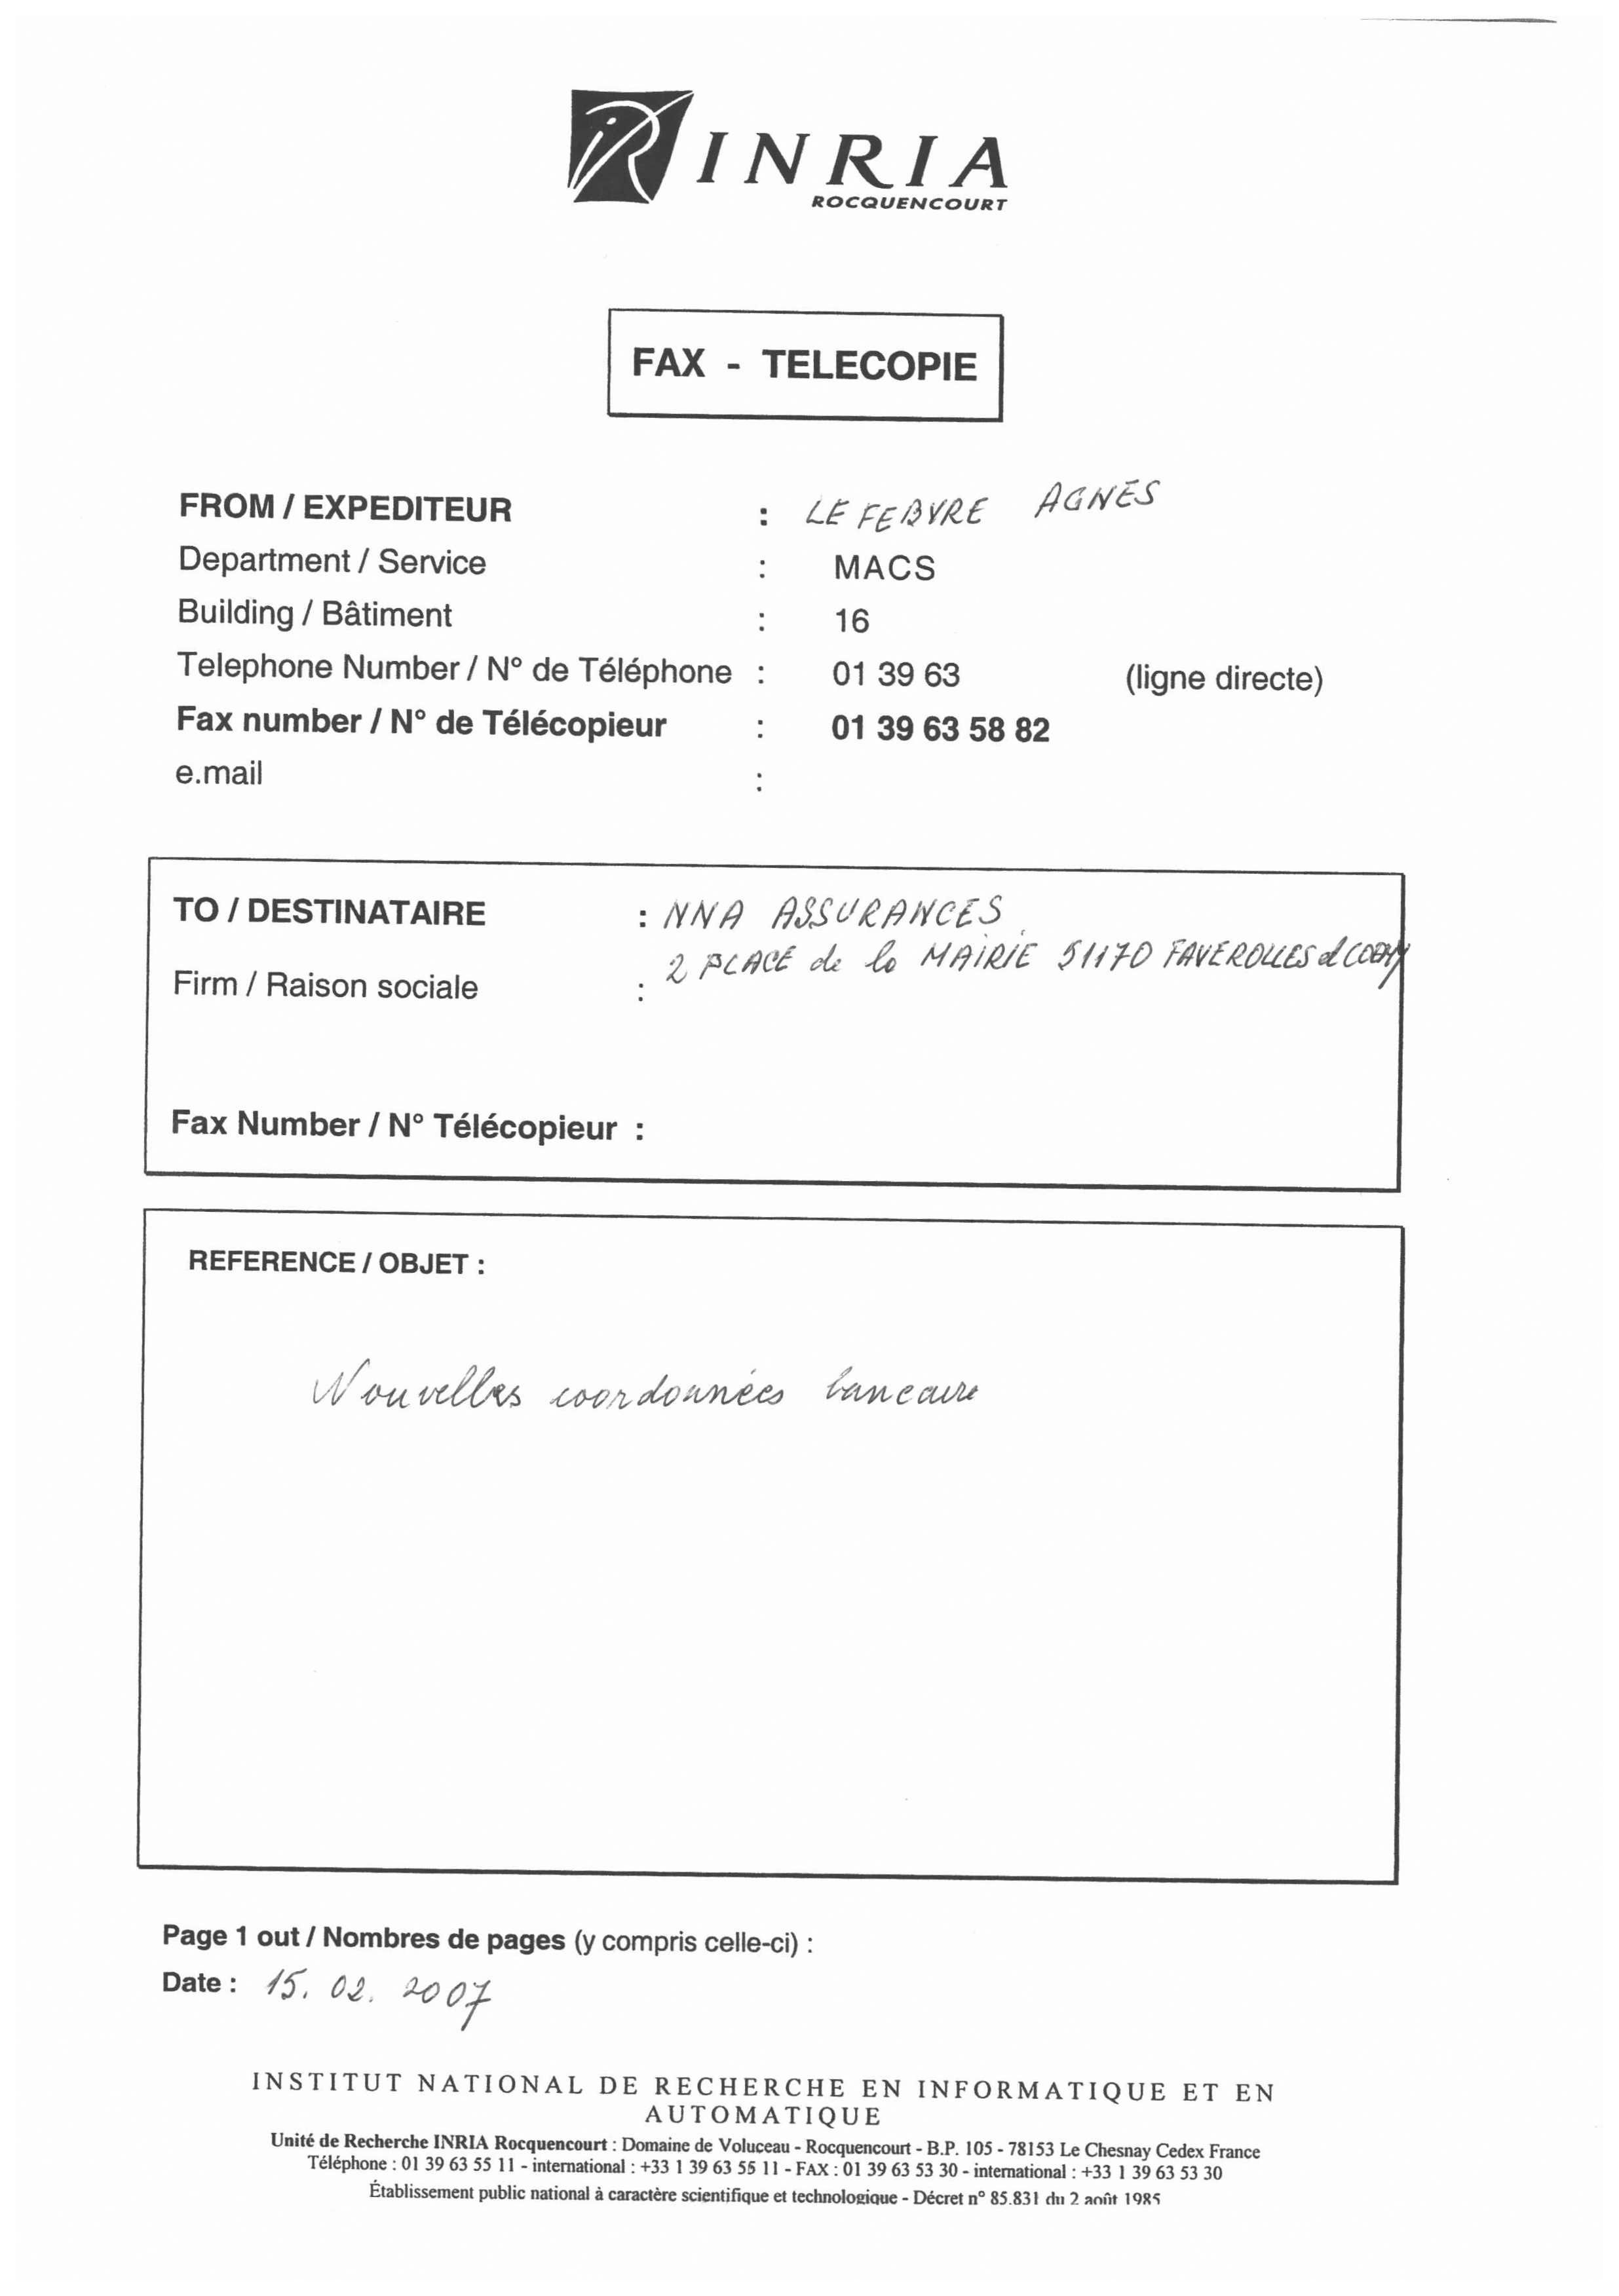 INRIA
ROCQUENCOURT
FAX - TELECOPIE
FROM / EXPEDITEUR : LEFEBVRE AGNES
Department / Service : MACS
Building / Bâtiment : 16
Telephone Number / N° de Téléphone : 01 39 63 (ligne directe)
Fax number / N° de Télécopieur : 01 39 63 58 82
e.mail :
TO / DESTINATAIRE : NNA ASSURANCES
2 PLACE de la MAIRIE 51170 FAVEROLLES et COEMY
Firm / Raison sociale :
Fax Number / N° Télécopieur :
REFERENCE / OBJET :
Nouvelles coordonnées bancaire
Page 1 out / Nombres de pages (y compris celle-ci) :
Date : 15. 02. 2007
INSTITUT NATIONAL DE RECHERCHE EN INFORMATIQUE ET EN
AUTOMATIQUE
Unité de Recherche INRIA Rocquencourt : Domaine de Voluceau - Rocquencourt - B.P. 105 - 78153 Le Chesnay Cedex France
Téléphone : 01 39 63 55 11 - international : +33 1 39 63 55 11 - FAX : 01 39 63 53 30 - international : +33 1 39 63 53 30
Établissement public national à caractère scientifique et technologique - Décret n° 85.831 du 2 août 1985